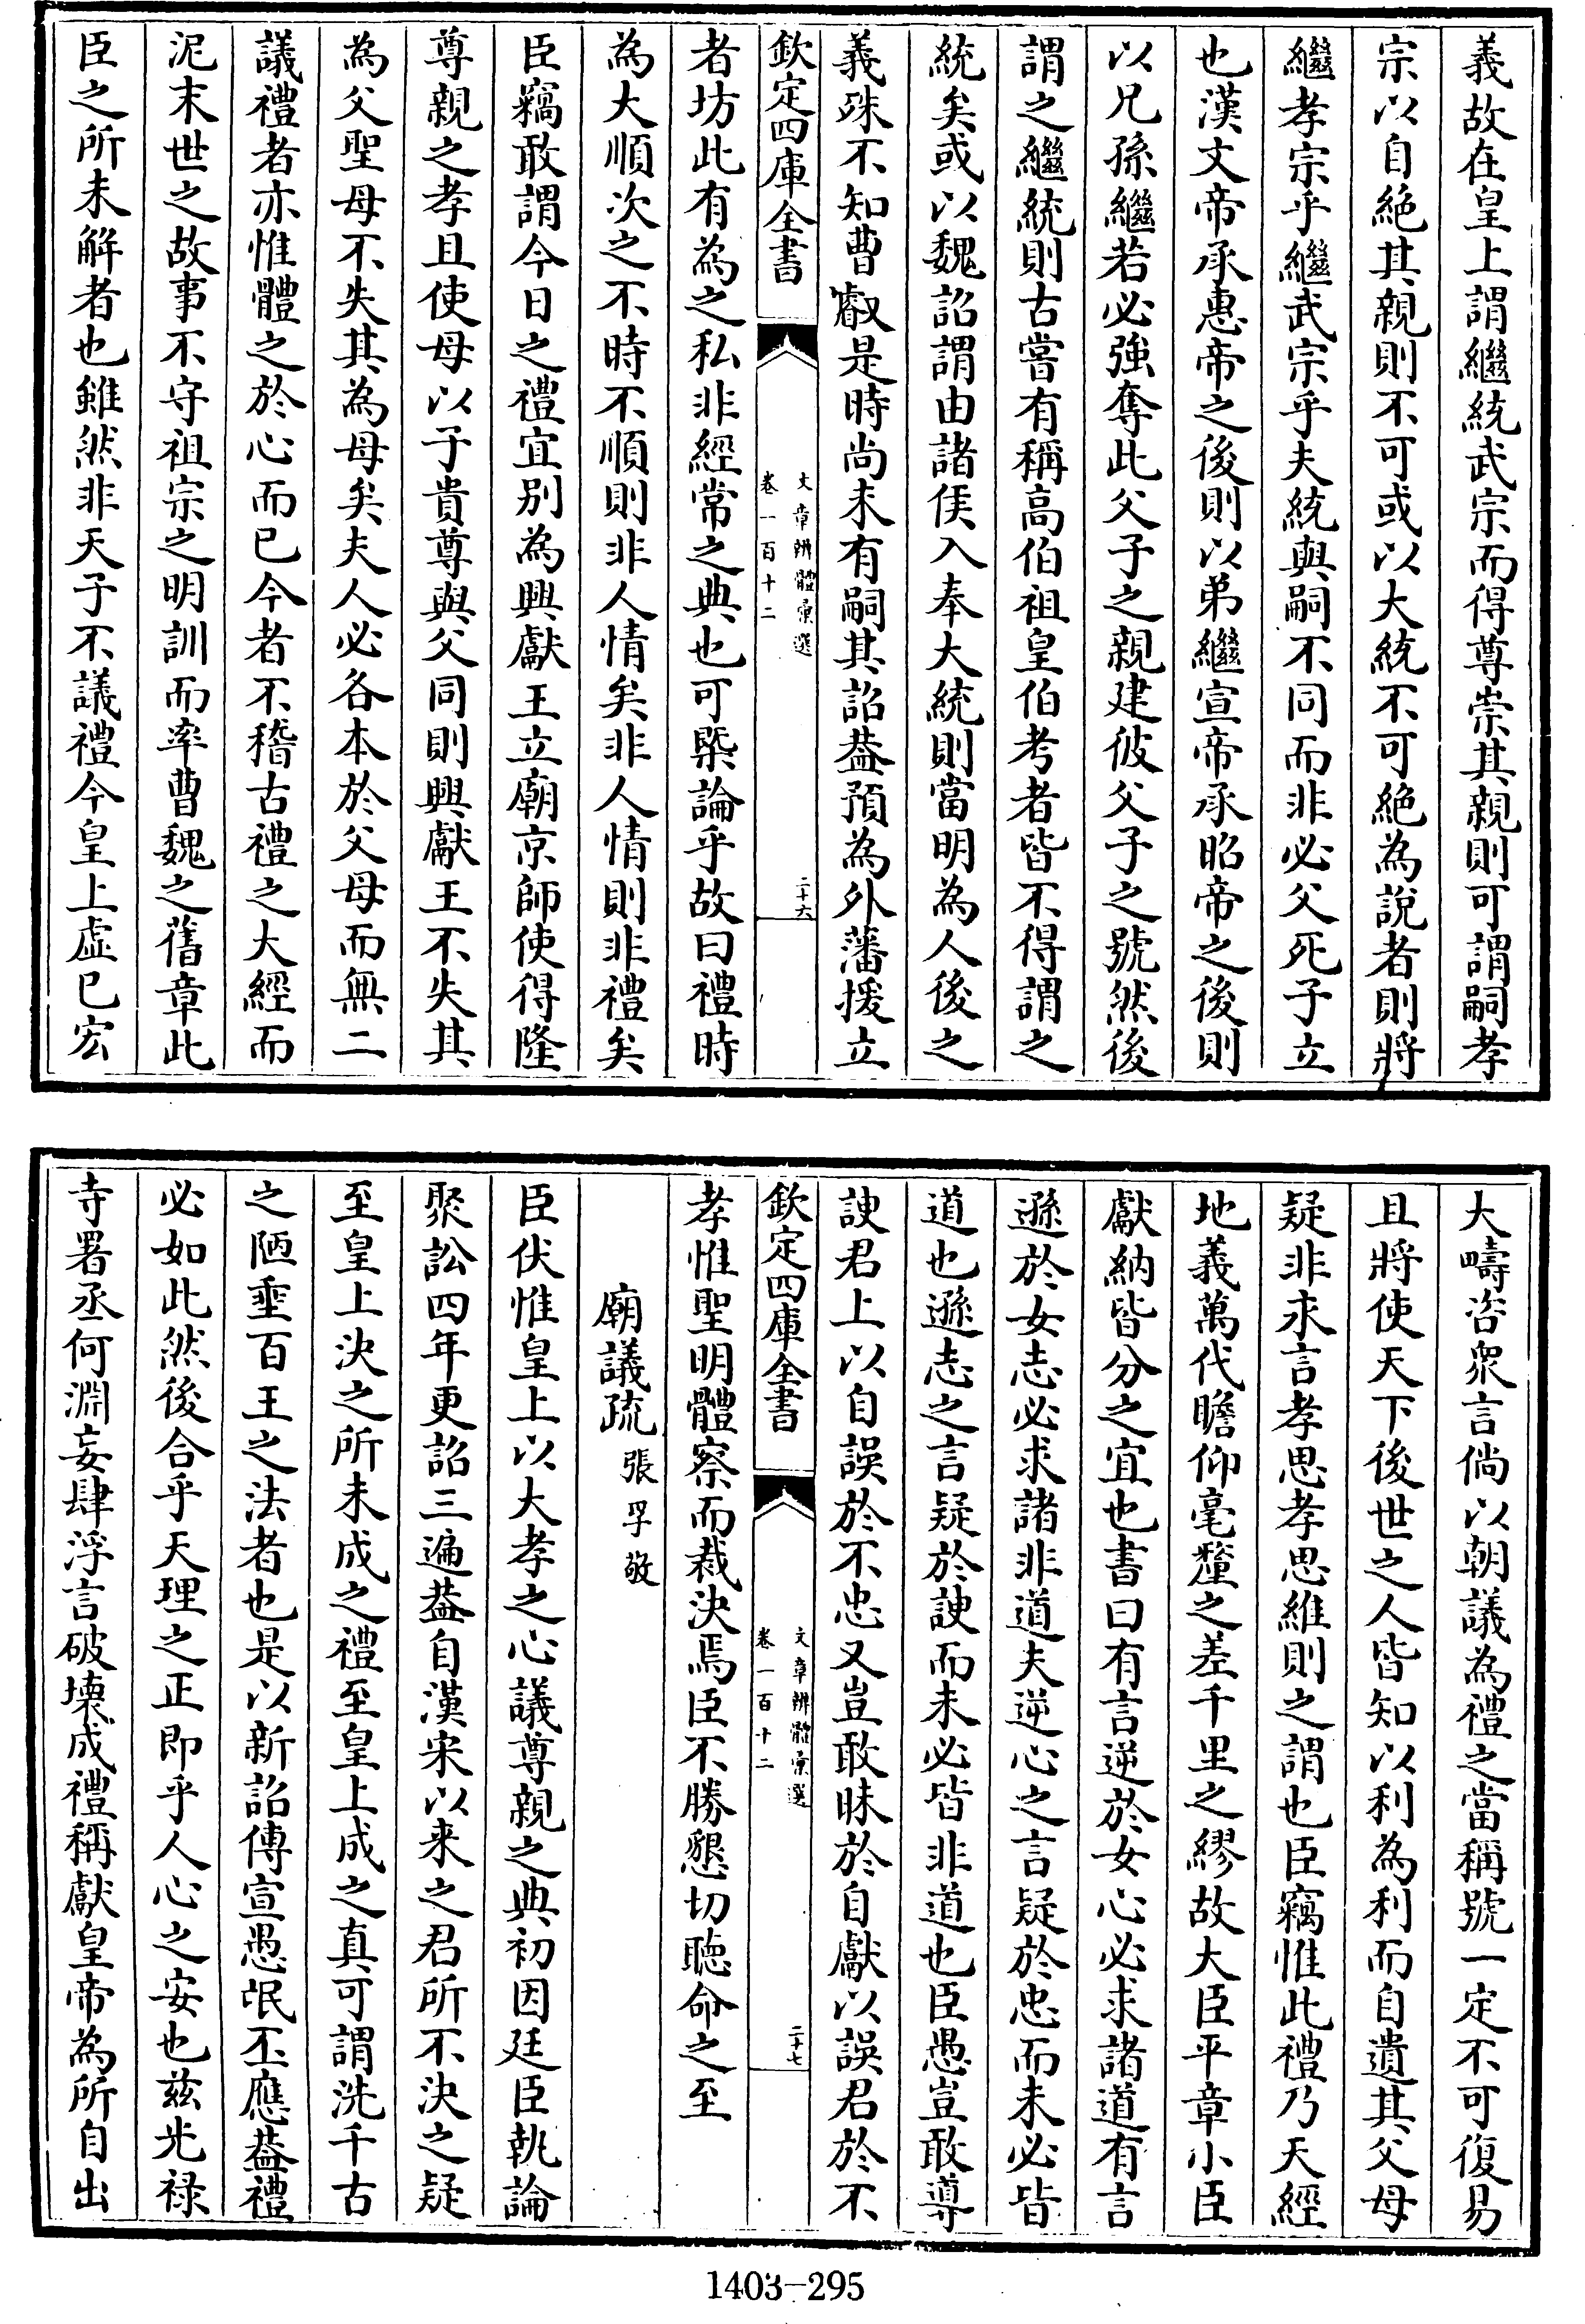 義故在皇上謂繼統武宗而得尊崇其親則可謂嗣孝
宗以自絶其親則不可或以大統不可絶為說者則將
繼孝宗乎繼武宗乎夫統與嗣不同而非必父死子立
也漢文帝承惠帝之後則以弟繼宣帝承昭帝之後則
以兄孫繼若必強奪此父子之親建彼父子之號然後
謂之繼統則古嘗有稱高伯祖皇伯考者皆不得謂之
統矣或以魏詔謂由諸侯入奉大統則當明為人後之
義殊不知曹叡是時尚未有嗣其詔葢預為外藩援立
欽定四庫全書
文章辨體彙選
卷一百十二
二十六
者坊此有為之私非經常之典也可槩論乎故曰禮時
為大順次之不時不順則非人情矣非人情則非禮矣
臣竊敢謂今日之禮宜别為興獻王立廟京師使得隆
尊親之孝且使母以子貴尊與父同則興獻王不失其
為父聖母不失其為母矣夫人必各本於父母而無二
議禮者亦惟體之於心而已今者不稽古禮之大經而
泥末世之故事不守祖宗之明訓而率曹魏之舊章此
臣之所未解者也雖然非天子不議禮今皇上虚已宏
大疇咨衆言倘以朝議為禮之當稱號一定不可復易
且將使天下後世之人皆知以利為利而自遺其父母
疑非永言孝思孝思維則之謂也臣竊惟此禮乃天經
地義萬代瞻仰毫釐之差千里之繆故大臣平章小臣
獻納皆分之宜也書曰有言逆於女心必求諸道有言
遜於女志必求諸非道夫逆心之言疑於忠而未必皆
道也遜志之言疑於諛而未必皆非道也臣愚豈敢導
諛君上以自誤於不忠又豈敢昧於自獻以誤君於不
欽定四庫全書
文章辨體彙選
卷一百十二
二十七
孝惟聖明體察而裁決焉臣不勝懇切聽命之至
廟議疏張孚敬
臣伏惟皇上以大孝之心議尊親之典初因廷臣執論
聚訟四年更詔三遍葢自漢宋以来之君所不決之疑
至皇上決之所未成之禮至皇上成之真可謂洗千古
之陋垂百王之法者也是以新詔傳宣愚氓丕應葢禮
必如此然後合乎天理之正即乎人心之安也兹光禄
寺署丞何淵妄肆浮言破壊成禮稱獻皇帝為所自出
1403-295